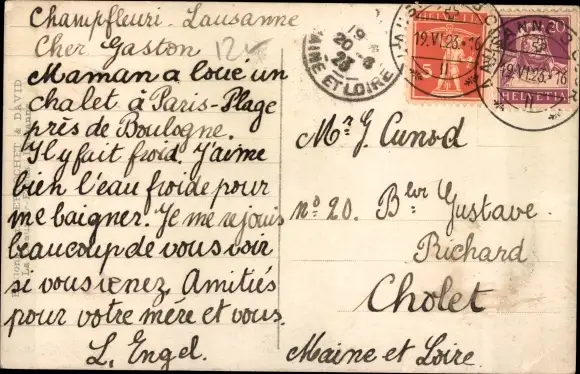 Champfleuri. Lausanne
Cher Gaston
124
Maman a loué un
chalet à Paris-Plage
près de Boulogne.
Il y fait froid. J'aime
bien l'eau froide pour
me baigner. Je me rejouis
beaucoup de vous voir
si vous venez. Amitiés
pour votre mère et vous.
L. Engel.
20 - 6
23
MAINE ET LOIRE
5
19.VI.23.-16
II
20
HELVETIA
19.VI.23.-16
II
Mr. J. Cunod
no. 20. Blvr Gustave.
Richard
Cholet
Maine et Loire.
DAVID